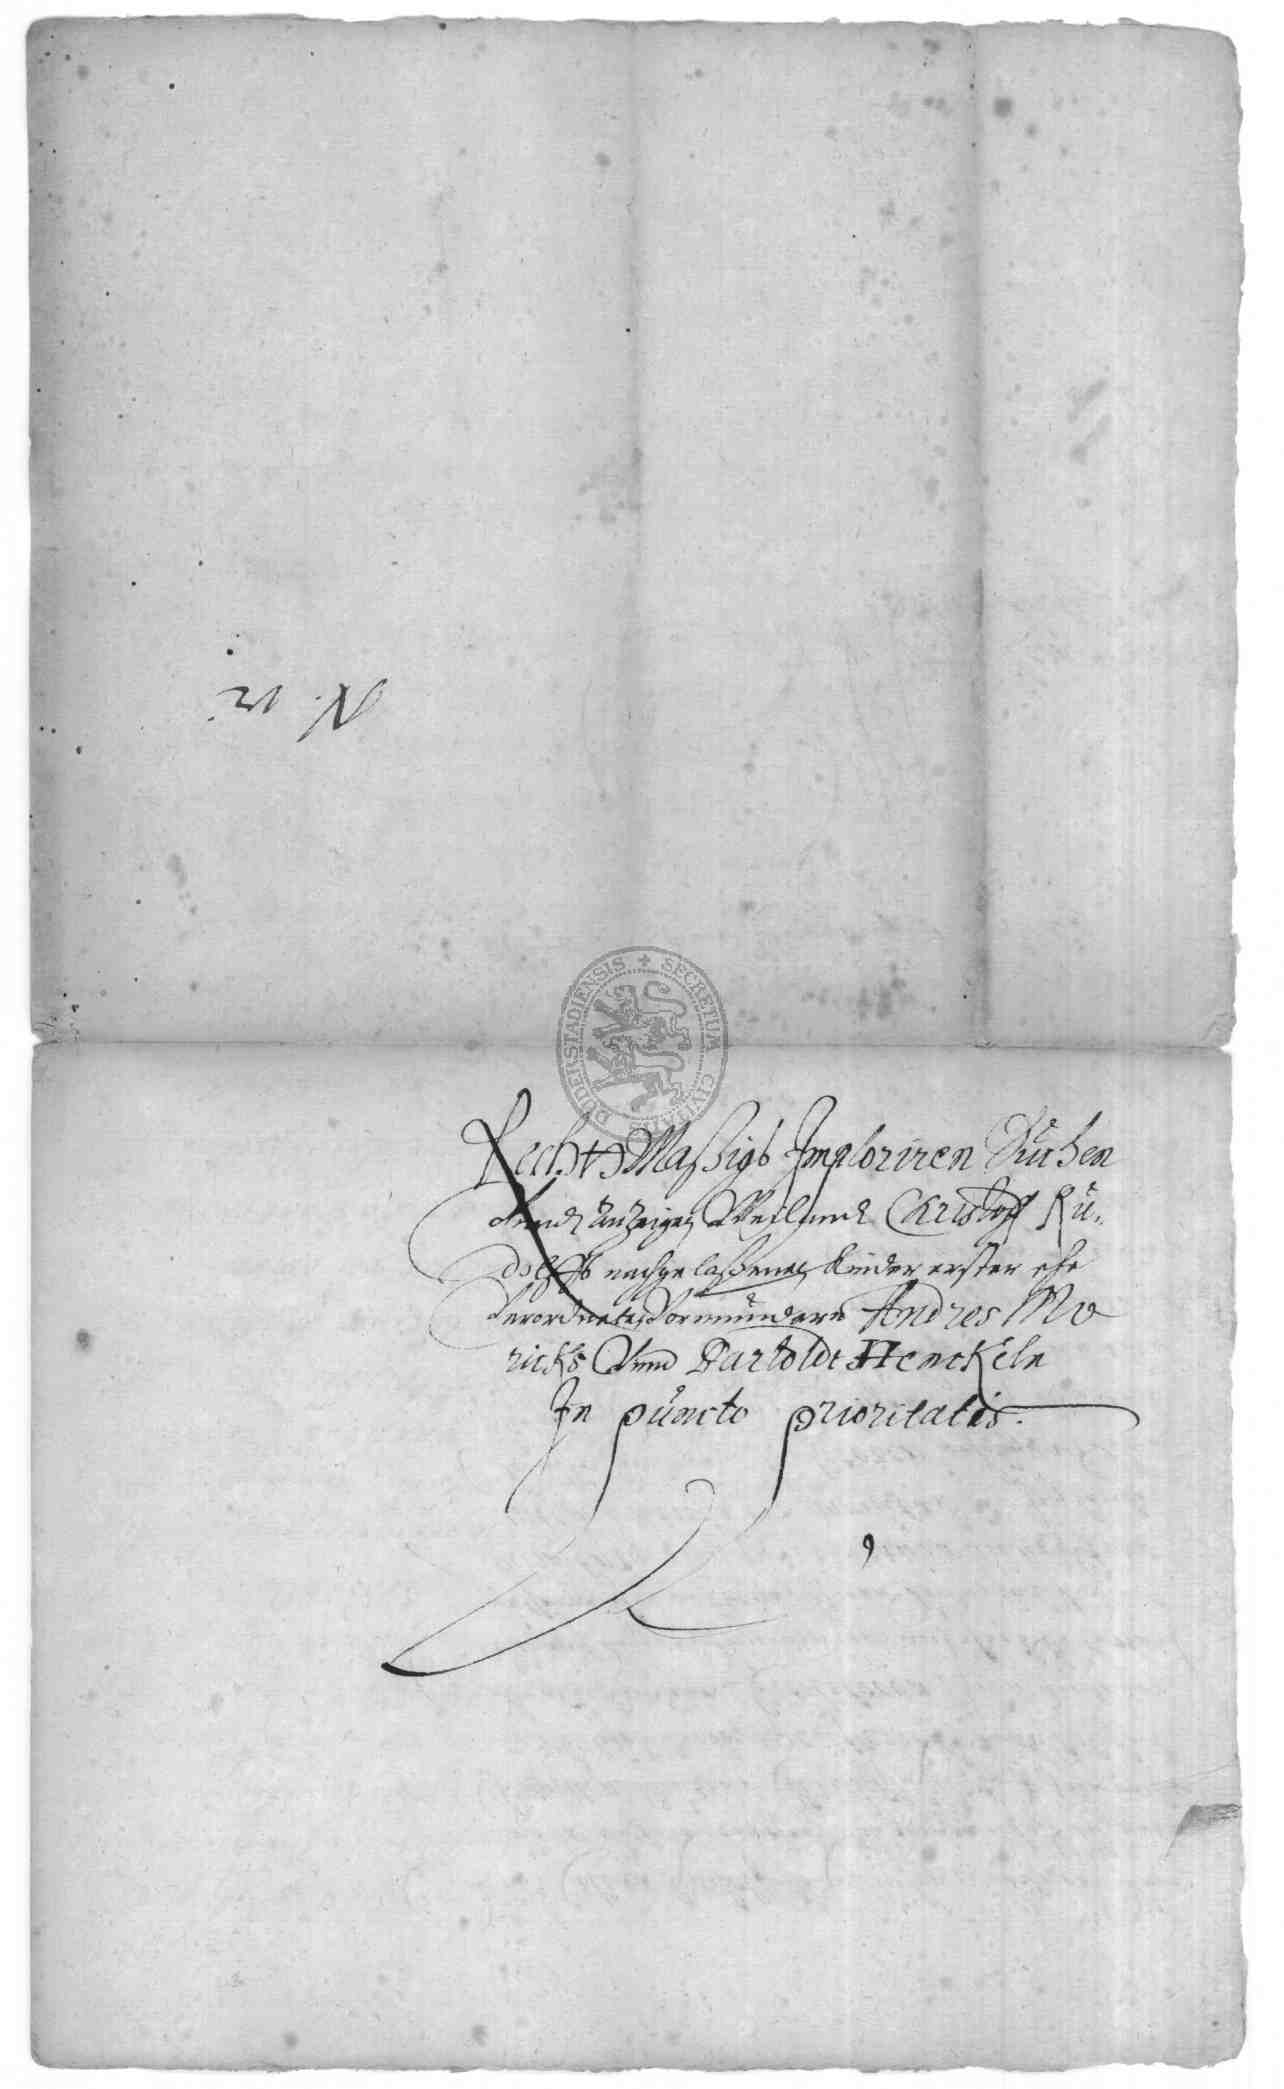 N. 12.
SECRETUM CIVITATIS DUDERSTADIENSIS
Rechts Maßigs Imploriren Suchen
Unndt anzeigen Weilandt Christoff Ru-
dolffs nachgelaßenen Kinder erster ehe
Verordneten Vormündern Andres Mo
ricks Vnnd Bartoldt Henckeln
In puncto prioritatis.